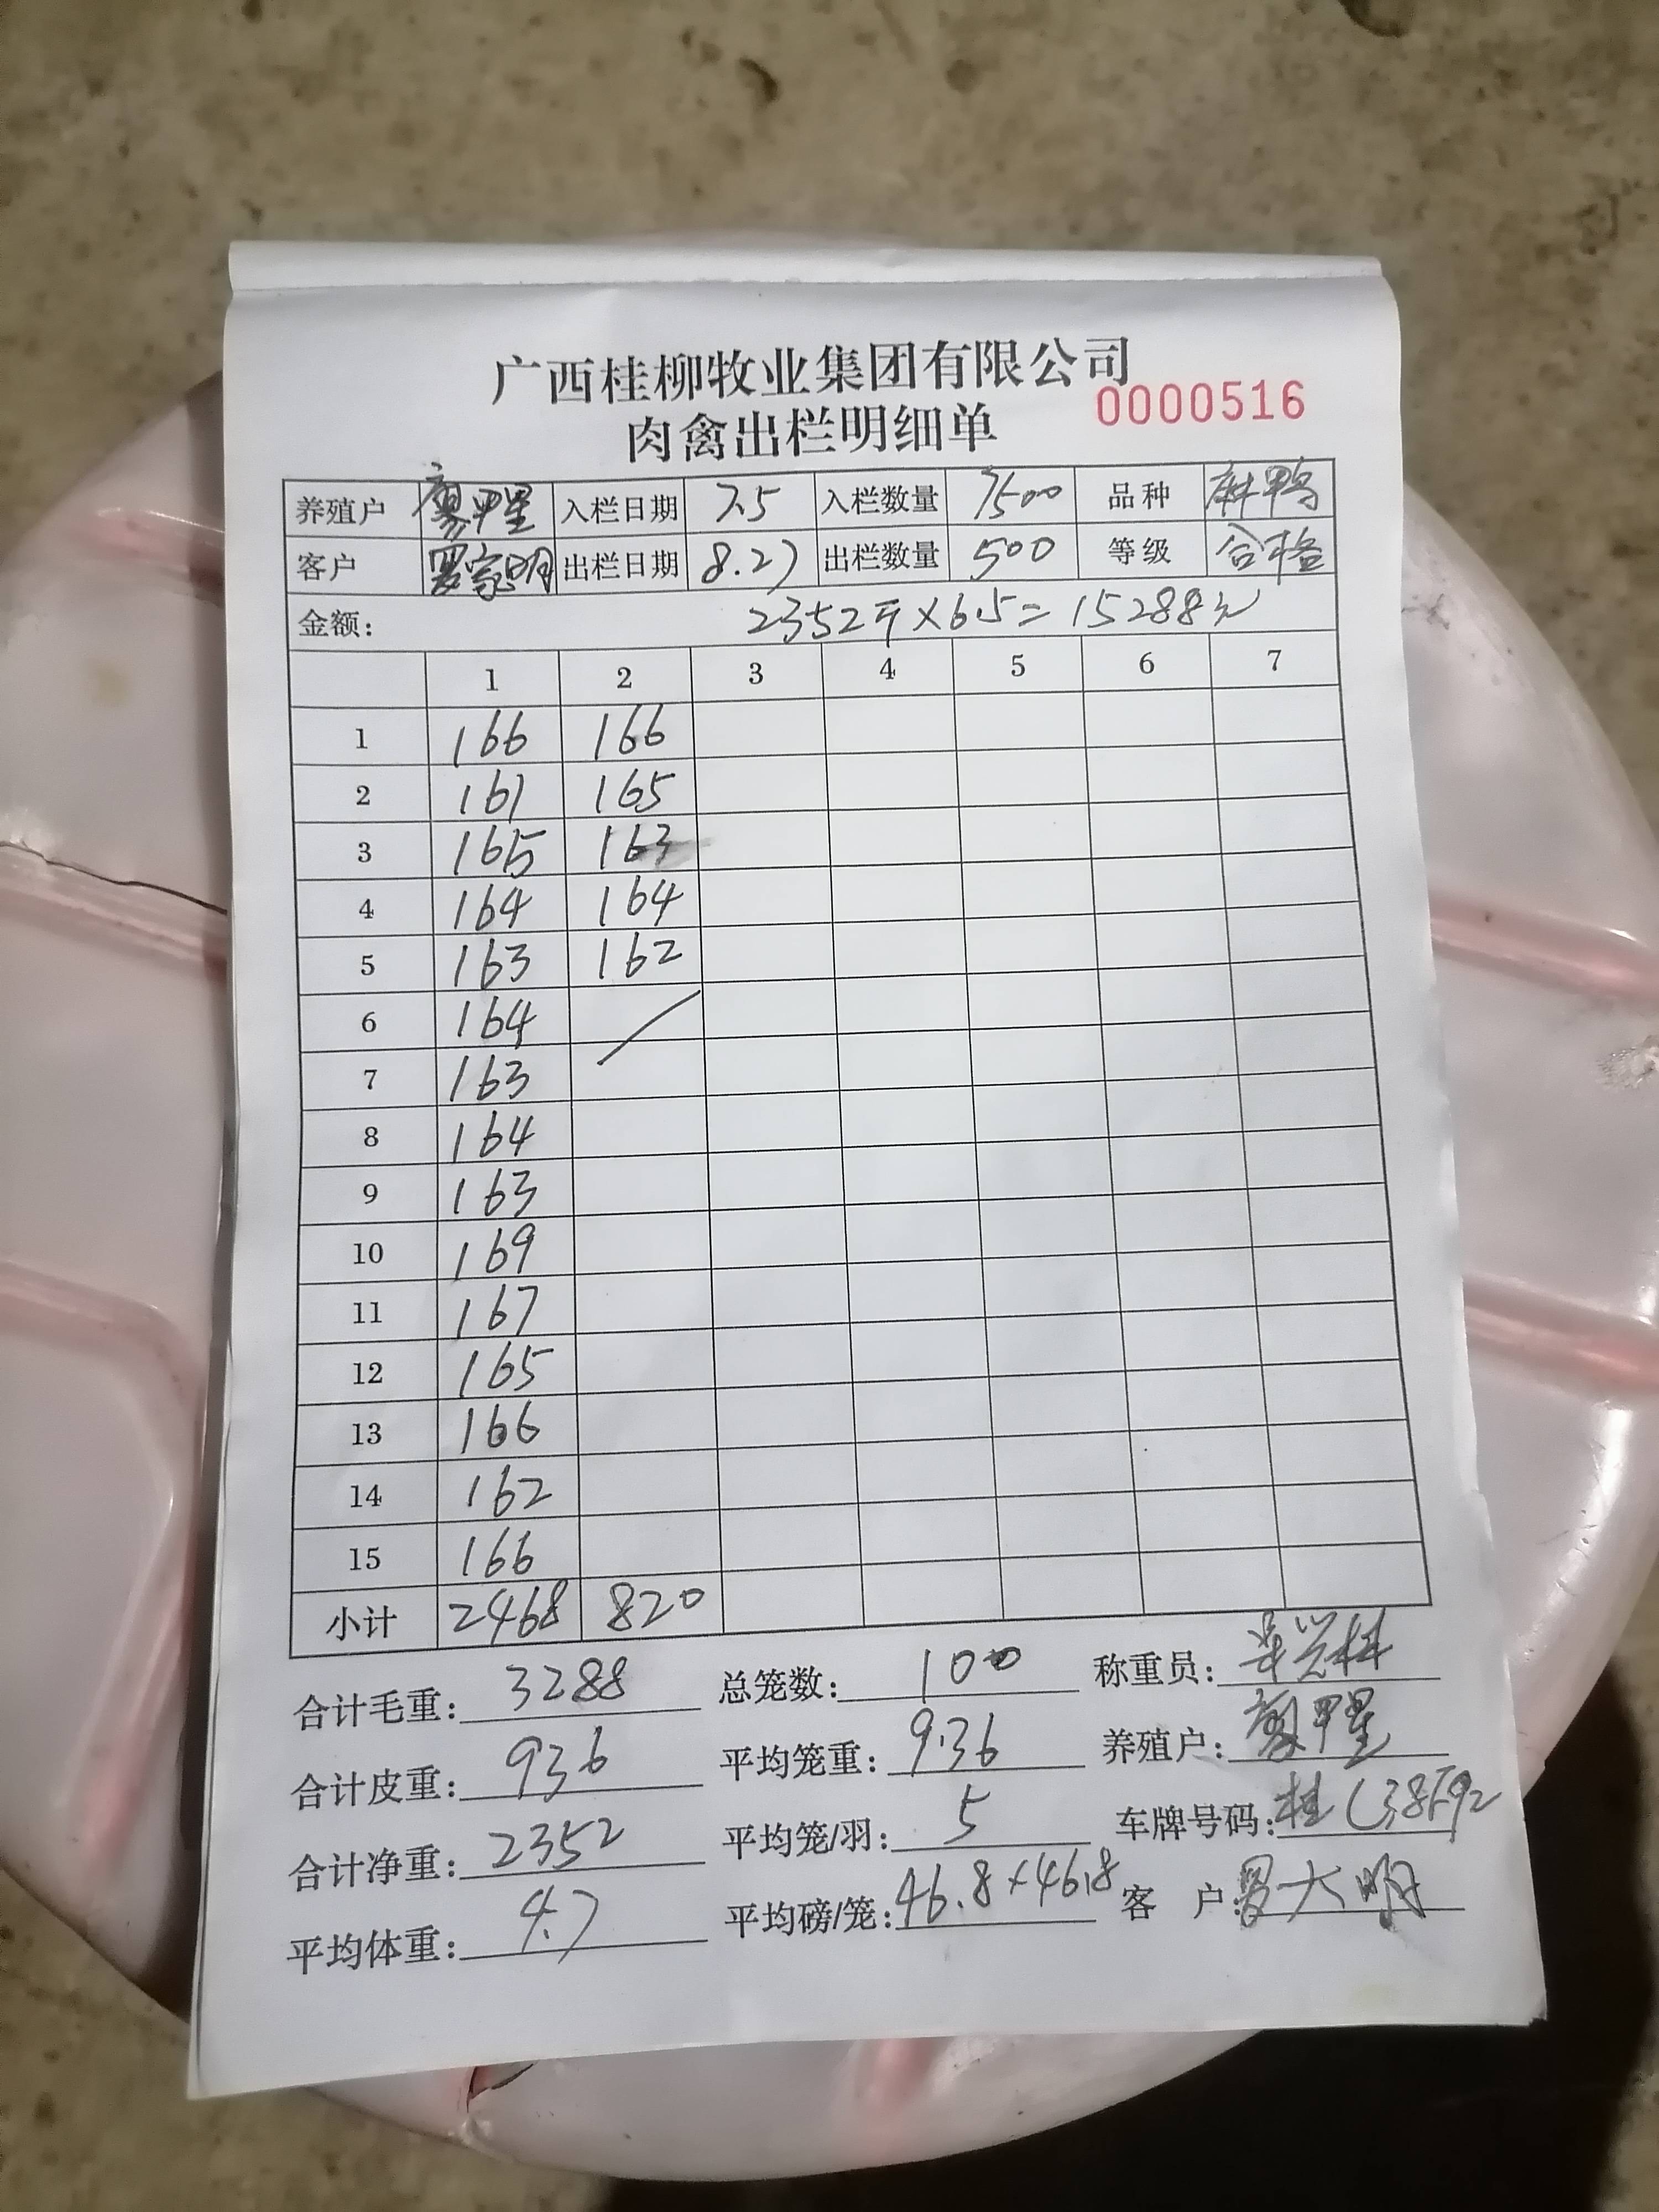 广西桂柳牧业集团有限公司
肉禽出栏明细单 0000516
养殖户 廖甲星 入栏日期 7.5 入栏数量 7500 品种 麻鸭
客户 罗家明 出栏日期 8.27 出栏数量 500 等级 合格
金额: 2352斤×6.5=15288元
1 2 3 4 5 6 7
1 166 166
2 161 165
3 165 163
4 164 164
5 163 162
6 164
7 163
8 164
9 163
10 169
11 167
12 165
13 166
14 162
15 166
小计 2468 820
合计毛重: 3288 总笼数: 100 称重员:
合计皮重: 936 平均笼重: 9.36 养殖户: 廖甲星
合计净重: 2352 平均笼/羽: 5 车牌号码: 桂C38F92
平均体重: 4.7 平均磅/笼: 46.8×46.8 客 户: 罗大明